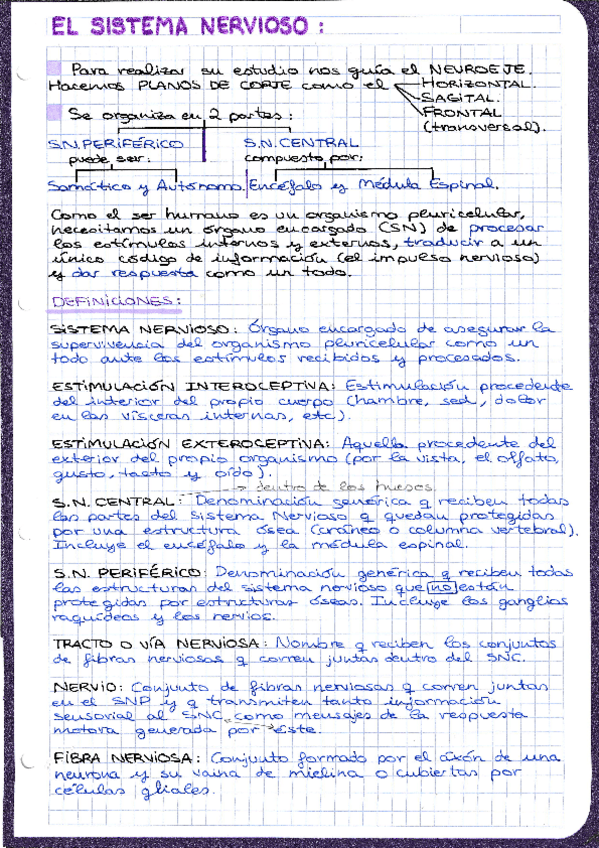 EL SISTEMA NERVIOSO :
Para realizar su estudio nos guía el NEUROEJE.
Hacemos PLANOS DE CORTE como el HORIZONTAL.
SAGITAL.
FRONTAL
(transversal).
Se organiza en 2 partes :
S.N.PERIFÉRICO S.N.CENTRAL
puede ser: compuesto por:
Somático y Autónomo. Encéfalo y Médula Espinal.
Como el ser humano es un organismo pluricelular,
necesitamos un órgano encargado (SN) de procesar
los estímulos internos y externos, traducir a un
único código de información (el impulso nervioso)
y dar respuesta como un todo.
DEFINICIONES:
SISTEMA NERVIOSO: Órgano encargado de asegurar la
supervivencia del organismo pluricelular como un
todo ante los estímulos recibidos y procesados.
ESTIMULACIÓN INTEROCEPTIVA: Estimulación procedente
del interior del propio cuerpo (hambre, sed, dolor
en las vísceras internas, etc).
ESTIMULACIÓN EXTEROCEPTIVA: Aquella procedente del
exterior del propio organismo (por la vista, el olfato,
gusto, tacto y oído).
→ dentro de los huesos
S.N. CENTRAL: Denominación genérica q reciben todas
las partes del Sistema Nervioso q quedan protegidas
por una estructura ósea (cráneo o columna vertebral).
Incluye el encéfalo y la médula espinal.
S.N. PERIFÉRICO: Denominación genérica q reciben todas
las estructuras del sistema nervioso que no están
protegidas por estructuras óseas. Incluye los ganglios
raquídeos y los nervios.
TRACTO O VÍA NERVIOSA: Nombre q reciben los conjuntos
de fibras nerviosas q corren juntas dentro del SNC.
NERVIO: Conjunto de fibras nerviosas q corren juntas
en el SNP y q transmiten tanto información
sensorial al SNC como mensajes de la respuesta
motora generada por éste.
FIBRA NERVIOSA: Conjunto formado por el axón de una
neurona y su vaina de mielina o cubiertas por
células gliales.